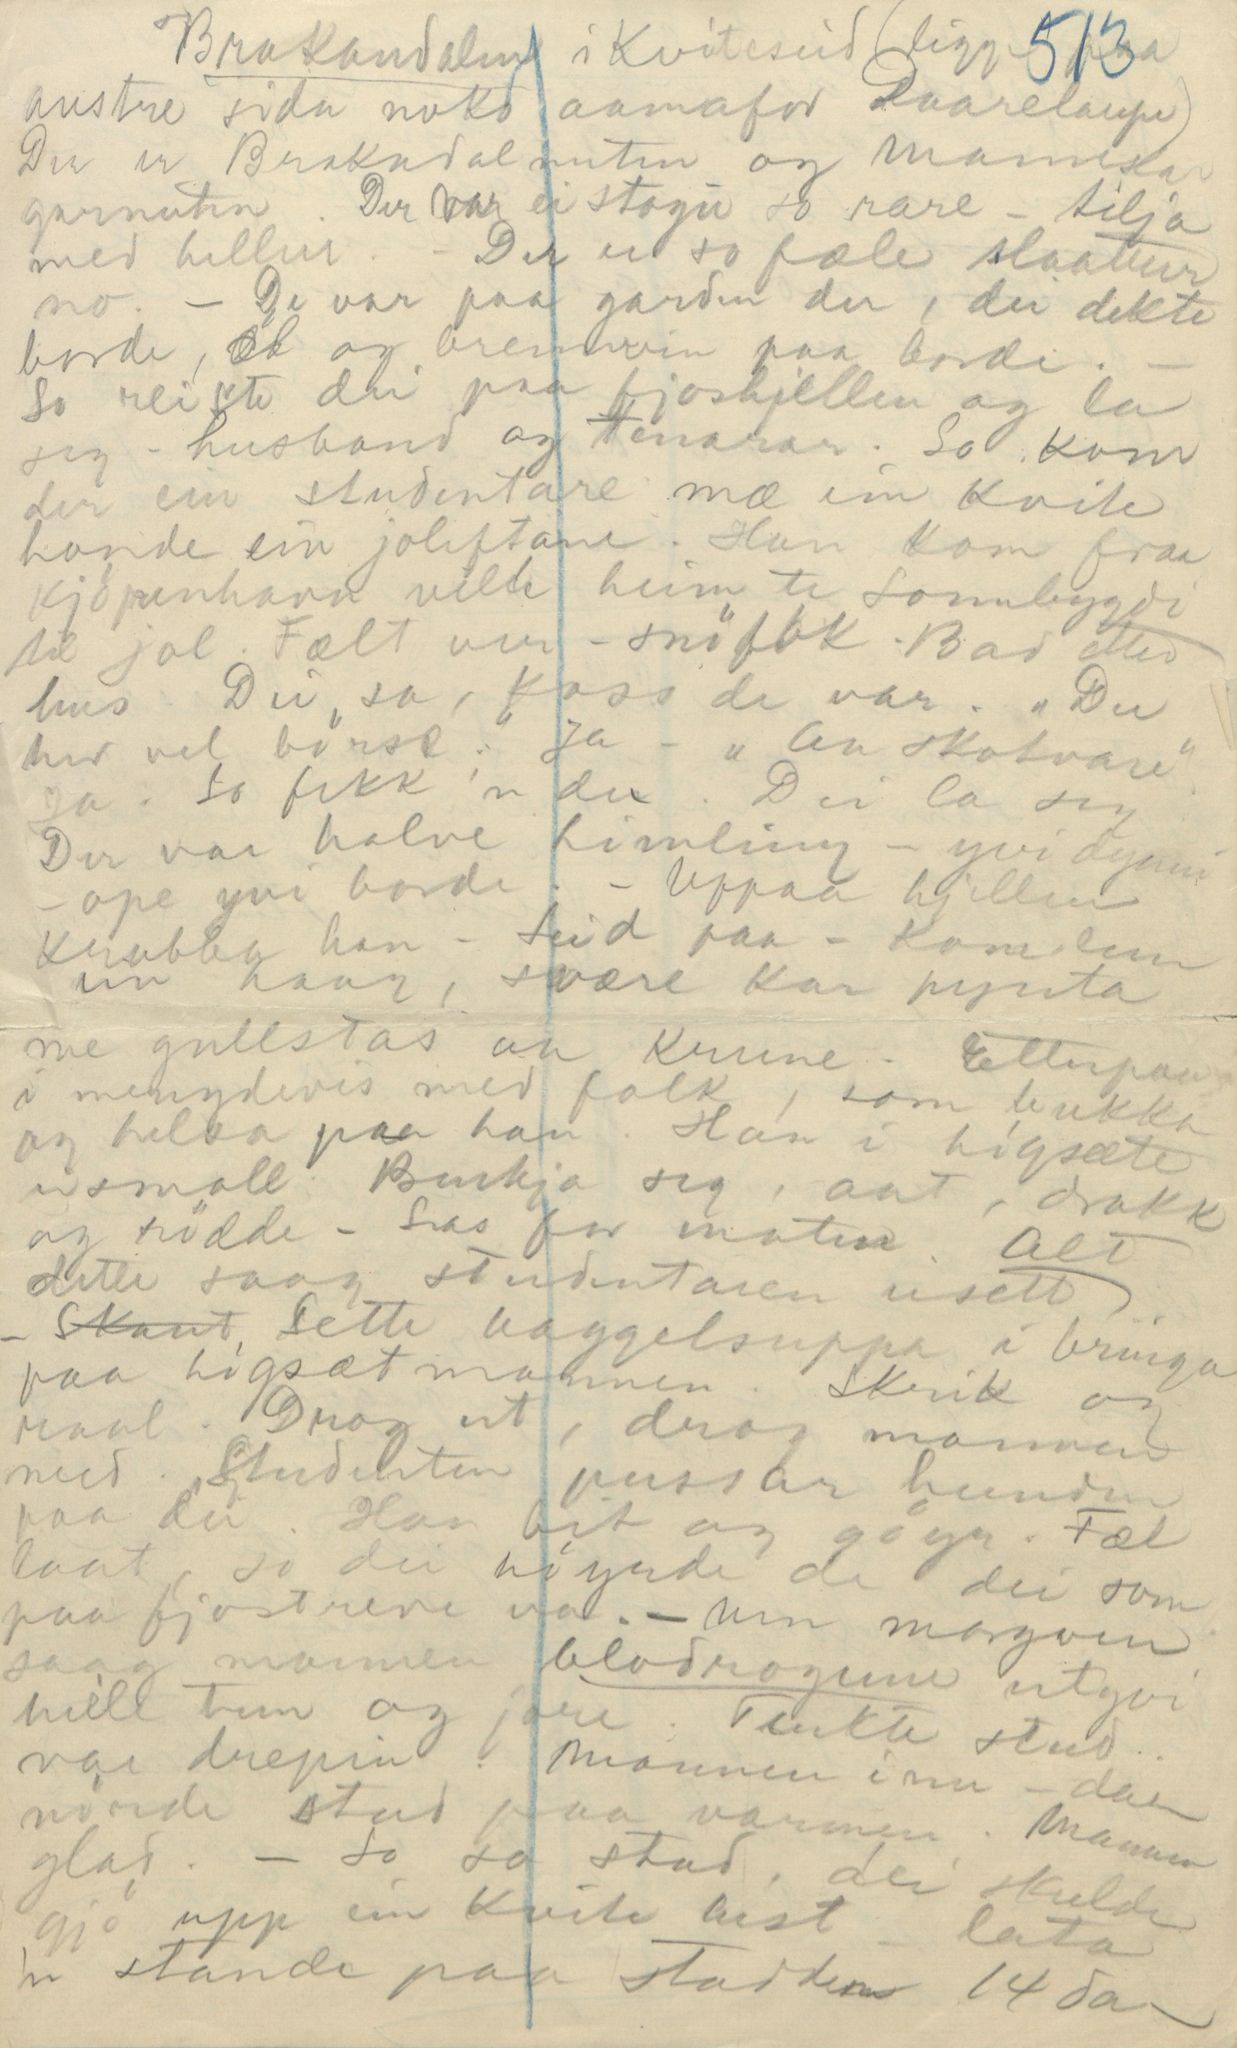 Brakandalen i Kviteseid (ligg paa 513
austre sida noko aamafor Daarelaupe)
Der er Brakadalnuten og Manneskar
garnuten. Der var ei stogu so rare - tilja
med hellur. - Der er so fæle slaatteur
no. - De var paa garden der, dei dekte
borde, öl og brennevin paa borde. -
So reiste dei paa fjoshjellen og la
seg - husbond og tenarar. So kom
der ein studentare mæ ein kvite
honde ein joleftane. Han kom fraa
Kjöpenhavn ville heim te Sonnbygdi
til jol. Fælt veer - snöfok. Bad etter
hus. Dei sa, koss de var. "Du
her vel börse." Ja - "Aa skotvare"
Ja. So fekk 'n de. Dei la seg
Der var halve himling - yvi dynni
- ope yvi borde. - Uppaa hjellen
krabba han - Leid paa - Kom inn
ein haag, svære kar pynta
me gullstas aa krune. Etterpaa
i mengdevis med folk, som bukka
og helsa paa han. Han i högsæte
Benkja seg, aat, drakk
og rödde - Las for maten. Alt
dette saag studentaren usett
- Skaut, Sette baggelsuppa i bringa
paa högsætmannen. Skrik og
raal. Drog ut, drog mannen
med. Studenten pussar hunden
paa dei. Han beit og göyr. Fæl
laat, so dei höyrde de dei som
paa fjostreve va. - Um morgoen
saag mannen blodrogune utyvi
heile tun og jore. Tenkte stud.
var drepin. Mannen inn - daa
nörde stud paa varmen. Mannen
glad. - So sa stud, dei skulde
gjö upp ein kvite hest - lata
'n stande paa stadden 14 da-